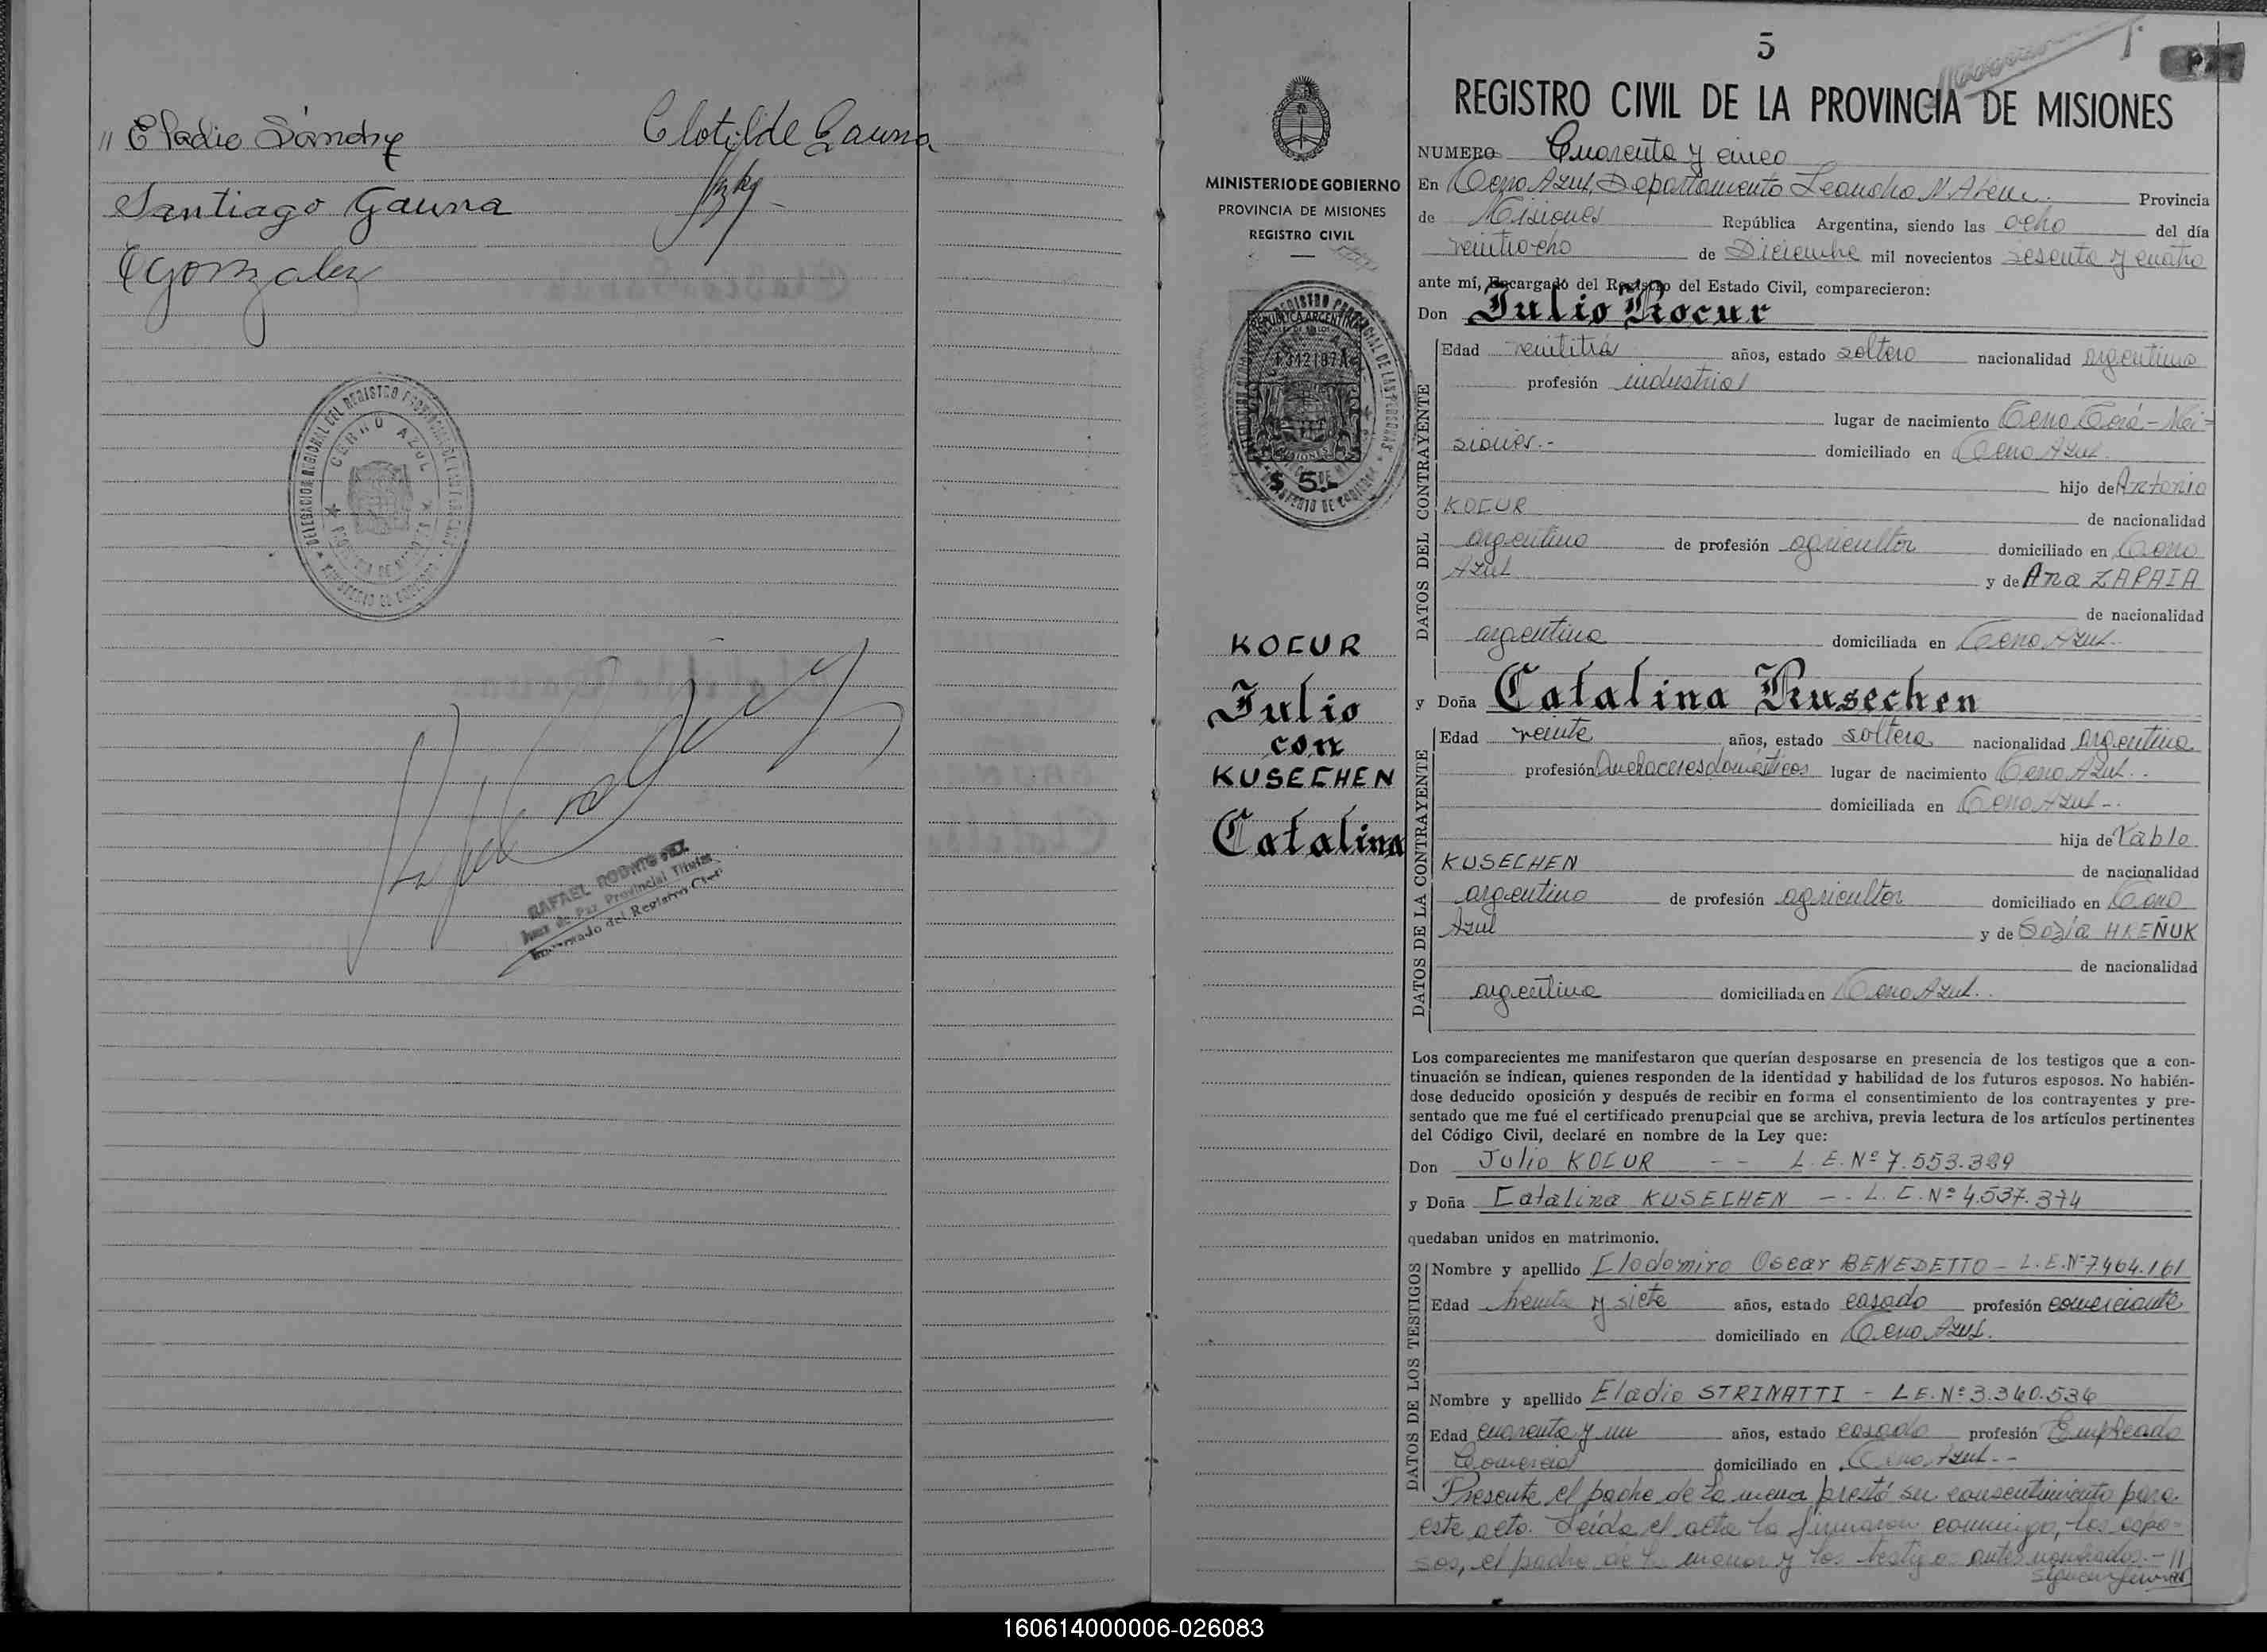 " Eladio Sánchez
Clotilde Gauna
Santiago Gauna
Gonzalez
DELEGACION REGIONAL DEL REGISTRO PROVINCIAL DE LAS PERSONAS
CERRO AZUL
PROVINCIA DE MISIONES
MINISTERIO DE GOBIERNO
RAFAEL RODRIGUEZ
Juez de Paz Provincial Titular
Encargado del Registro Civil
MINISTERIO DE GOBIERNO
PROVINCIA DE MISIONES
REGISTRO CIVIL
REPUBLICA ARGENTINA
MISIONES
$ 5.-
KOCUR
Julio
con
KUSECHEN
Catalina
5
REGISTRO CIVIL DE LA PROVINCIA DE MISIONES
NUMERO Cuarenta y cinco
En Cerro Azul, Departamento Leandro N. Alem Provincia
de Misiones República Argentina, siendo las ocho del día
veintiocho de Diciembre mil novecientos sesenta y cuatro
ante mí, Encargado del Registro del Estado Civil, comparecieron:
Don Julio Kocur
DATOS DEL CONTRAYENTE
Edad veintitrés años, estado soltero nacionalidad argentina
profesión industrial
lugar de nacimiento Cerro Corá - Mi-
siones.- domiciliado en Cerro Azul.
hijo de Antonio
KOCUR de nacionalidad
argentino de profesión agricultor domiciliado en Cerro
Azul y de Ana ZAPAIA
de nacionalidad
argentina domiciliada en Cerro Azul.
y Doña Catalina Kusechen
DATOS DE LA CONTRAYENTE
Edad veinte años, estado soltera nacionalidad argentina
profesión Quehaceres domésticos lugar de nacimiento Cerro Azul.
domiciliada en Cerro Azul-.
hija de Pablo
KUSECHEN de nacionalidad
argentino de profesión agricultor domiciliado en Cerro
Azul y de Sofía HREÑUK
de nacionalidad
argentina domiciliada en Cerro Azul.
Los comparecientes me manifestaron que querían desposarse en presencia de los testigos que a con-
tinuación se indican, quienes responden de la identidad y habilidad de los futuros esposos. No habién-
dose deducido oposición y después de recibir en forma el consentimiento de los contrayentes y pre-
sentado que me fué el certificado prenupcial que se archiva, previa lectura de los artículos pertinentes
del Código Civil, declaré en nombre de la Ley que:
Don Julio KOCUR -- L.E.Nº 7.553.389
y Doña Catalina KUSECHEN -- L.C.Nº 4.537.374
quedaban unidos en matrimonio.
DATOS DE LOS TESTIGOS
Nombre y apellido Clodomiro Oscar BENEDETTO - L.E.Nº 7.464.161
Edad treinta y siete años, estado casado profesión comerciante
domiciliado en Cerro Azul.
Nombre y apellido Eladio STRINATTI - L.E.Nº 3.340.536
Edad cuarenta y un años, estado casado profesión Empleado
Comercial domiciliado en Cerro Azul.-
Presente el padre de la menor prestó su consentimiento para
este acto. Leída el acta la firmaron conmigo, los espo-
sos, el padre de la menor y los testigos antes nombrados.- //
Siguen firmas
160614000006-026083